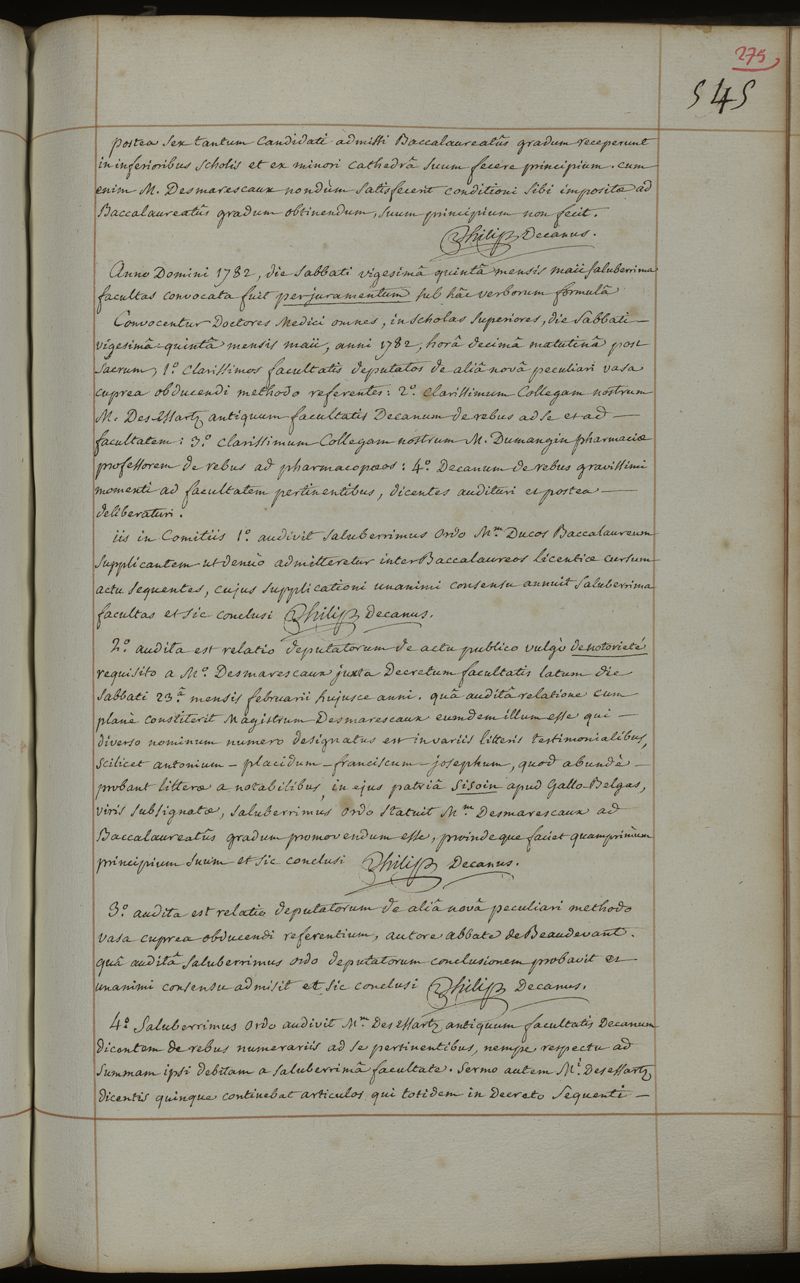 275
545
postea sex tantum Candidati admissi Baccalaureatûs gradum receperunt
in inferioribus scholis et ex minori cathedrâ suum fecere principium. cum
enim M. Desmarescaux nondùm satisfecerit conditioni sibi impositæ ad
Baccalaureatûs gradum obtinendum, suum principium non fecit.
Philip Decanus.
Anno Domini 1782, die sabbati vigesimâ quintâ mensis maii saluberrima
facultas convocata fuit per juramentum sub hâc verborum formulâ
Convocentur Doctores Medici omnes, in scholas superiores, die sabbati —
vigesimâ quintâ mensis maii, anni 1782, horâ decimâ matutinâ post
sacrum, 1.º clarissimos facultatis deputatos de aliâ novâ peculiari vasa
cuprea obducendi methodo referentes: 2.º clarissimum Collegam nostrum
M. Des Essartz antiquum facultatis Decanum de rebus ad se et ad —
facultatem: 3.º clarissimum Collegam nostrum M. Dumangin pharmaciæ
professorem de rebus ad pharmacopœos: 4.º Decanum de rebus gravissimi
momenti ad facultatem pertinentibus, dicentes audituri et postea —
deliberaturi.
iis in Comitiis 1.º audivit saluberrimus ordo M.um Ducos Baccalaureum
supplicantem ut denùo admitteretur inter Baccalaureos licentiæ cursum
actu sequentes, cujus supplicationi unanimi consensu annuit saluberrima
facultas et sic conclusi Philip Decanus.
2.º audita est relatio deputatorum de actu publico vulgò de notorieté
requisito a M.º Desmarescaux juxta Decretum facultatis latum die
sabbati 23.ª mensis februarii hujusce anni. quâ auditâ relatione cum
planè constiterit Magistrum Desmarescaux eumdem illum esse qui —
diverso nominum numero designatus est in variis litteris testimonialibus,
scilicet antonium - placidum - franciscum - josephum, quod abundè —
probant litteræ a notabilibus, in ejus patriâ Sisoin apud Gallo-Belgas,
viris subsignatæ, saluberrimus ordo statuit M.um Desmarescaux ad
Baccalaureatûs gradum promovendum esse, proindeque faciet quamprimùm
principium suum et sic conclusi Philip Decanus.
3.º audita est relatio deputatorum de aliâ novâ peculiari methodo
vasa cuprea obducendi referentium, autore abbate de Beaudevant.
quâ auditâ saluberrimus ordo deputatorum conclusionem probavit et
unanimi consensu admisit et sic conclusi Philip Decanus.
4.º Saluberrimus ordo audivit M.um Des Essartz antiquum facultatis Decanum
dicentem de rebus numerariis ad se pertinentibus, nempe respectu ad
summam ipsi debitam a saluberrimâ facultate. sermo autem M.i Desessartz
dicentis quinque continebat articulos qui totidem in Decreto sequenti —